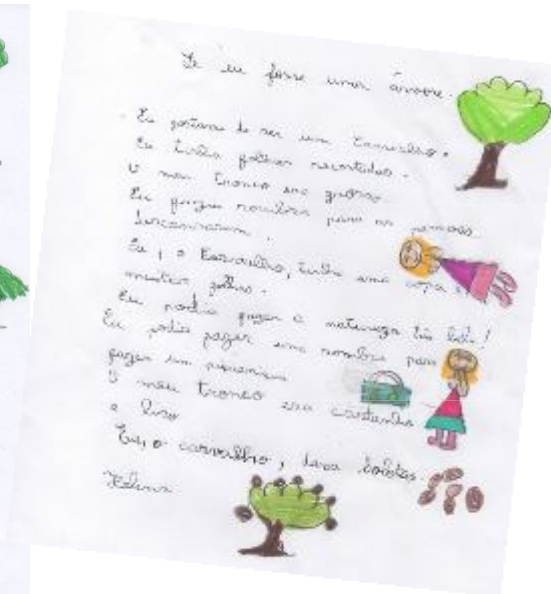 Se eu fosse uma árvore.
Eu gostava de ser um Carvalho.
Eu tinha folhas recortadas.
O meu tronco era grosso.
Eu fazia sombra para as pessoas
descansarem.
Eu, o Carvalho, tinha uma copa e
muitas folhas.
Eu podia fazer a natureza tão bela!
Eu podia fazer uma sombra para
fazer um piquenique
O meu tronco era castanho
e liso
Eu, o carvalho, dava bolotas.
Helena